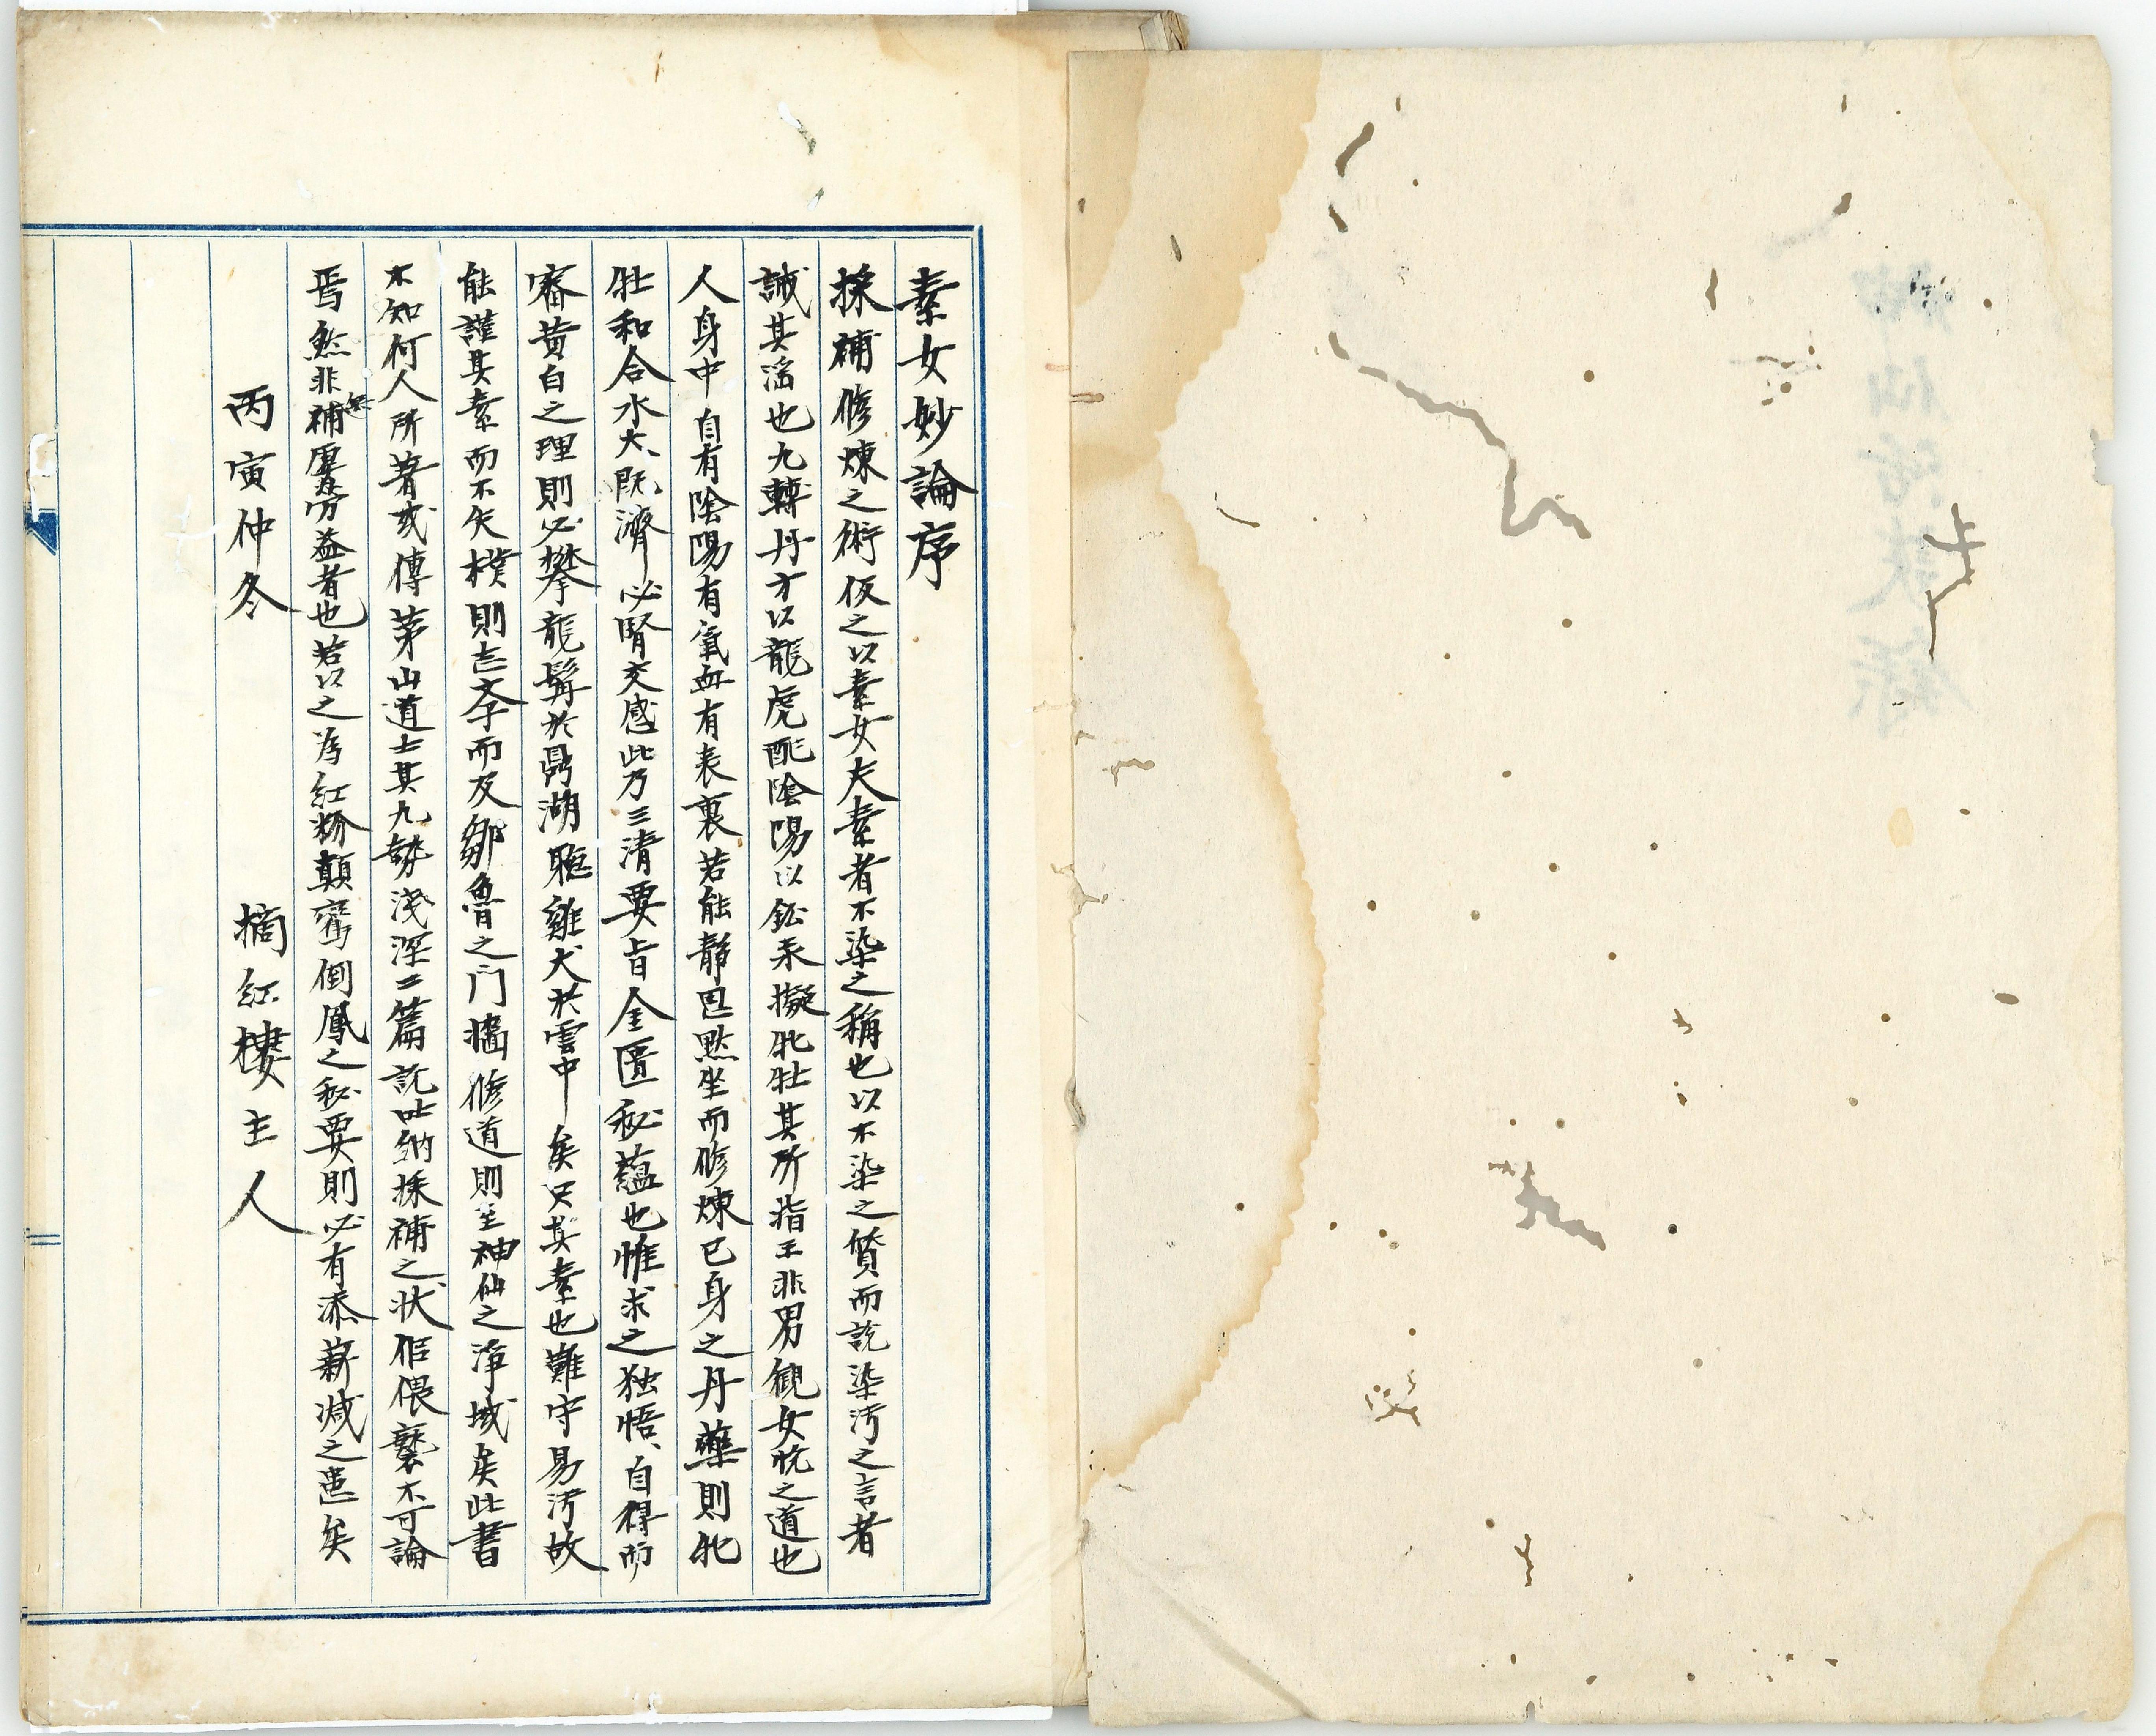 素女妙論序
採補修煉之術仮之以素女夫素者不染之稱也以不染之質而說染汚之言者
誡其滛也九轉丹才以龍虎配陰陽以鉛汞擬牝牡其所指玉非男觀女悅之道也
人身中自有陰陽有氣血有表裏若能靜思默坐而修煉已身之丹藥則牝
牡和合水火既濟心腎交感此乃三清要旨金匱秘蘊也惟求之独悟自得而
審黄白之理則必攀龍髯於鼎湖聴雞犬於雲中矣只其素也難守易汚故
能謹其素而不失樸則志孝而及鄒魯之门墻修道則至神仙之淨域矣此書
不知何人所著或傳茅山道士其九勢浅深二篇說吐納採補之状侰偎褻不可論
焉然非無補厚劳益者也若以之為紅粉顛鸞倒鳳之秘要則必有添薪减之患矣
丙寅仲冬 摘紅樓主人